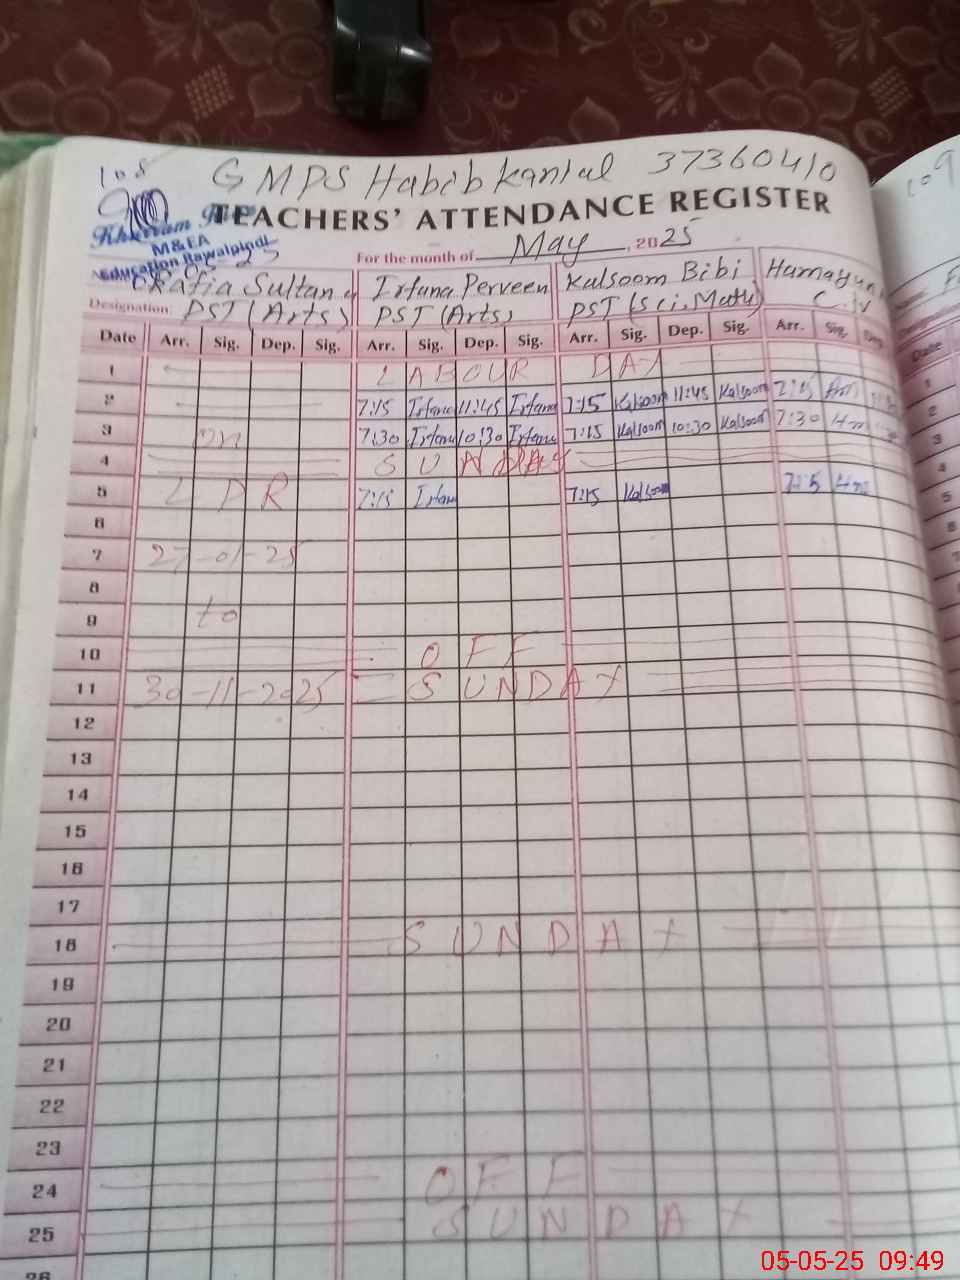 108
GMPS Habib Kanial 37360410
TEACHERS' ATTENDANCE REGISTER
Khurram
M&EA
Education Rawalpindi
For the month of May, 2025
Rafia Sultana Irfana Perveen Kulsoom Bibi Hamayun
Designation: PST (Arts) PST (Arts) PST (Sci, Math)
Date Arr. Sig. Dep. Sig. Arr. Sig. Dep. Sig. Arr. Sig. Dep. Sig. Arr. Sig. Dep.
1 LABOUR DAY
2 7:15 Irfana 11:45 Irfana 7:15 Kalsoom 11:45 Kalsoom 7:15
3 on 7:30 Irfana 10:30 Irfana 7:15 Kalsoom 10:30 Kalsoom 7:30
4 SUNDAY
5 LPR 7:15 Irfana 7:15 Kalsoom 7:15
6
7 27-01-25
8
9 to
10 OFF
11 30-11-2025 SUNDAY
12
13
14
15
16
17
18 SUNDAY
19
20
21
22
23
24 OFF
25 SUNDAY
26
109
Date
1
2
3
4
5
6
05-05-25 09:49